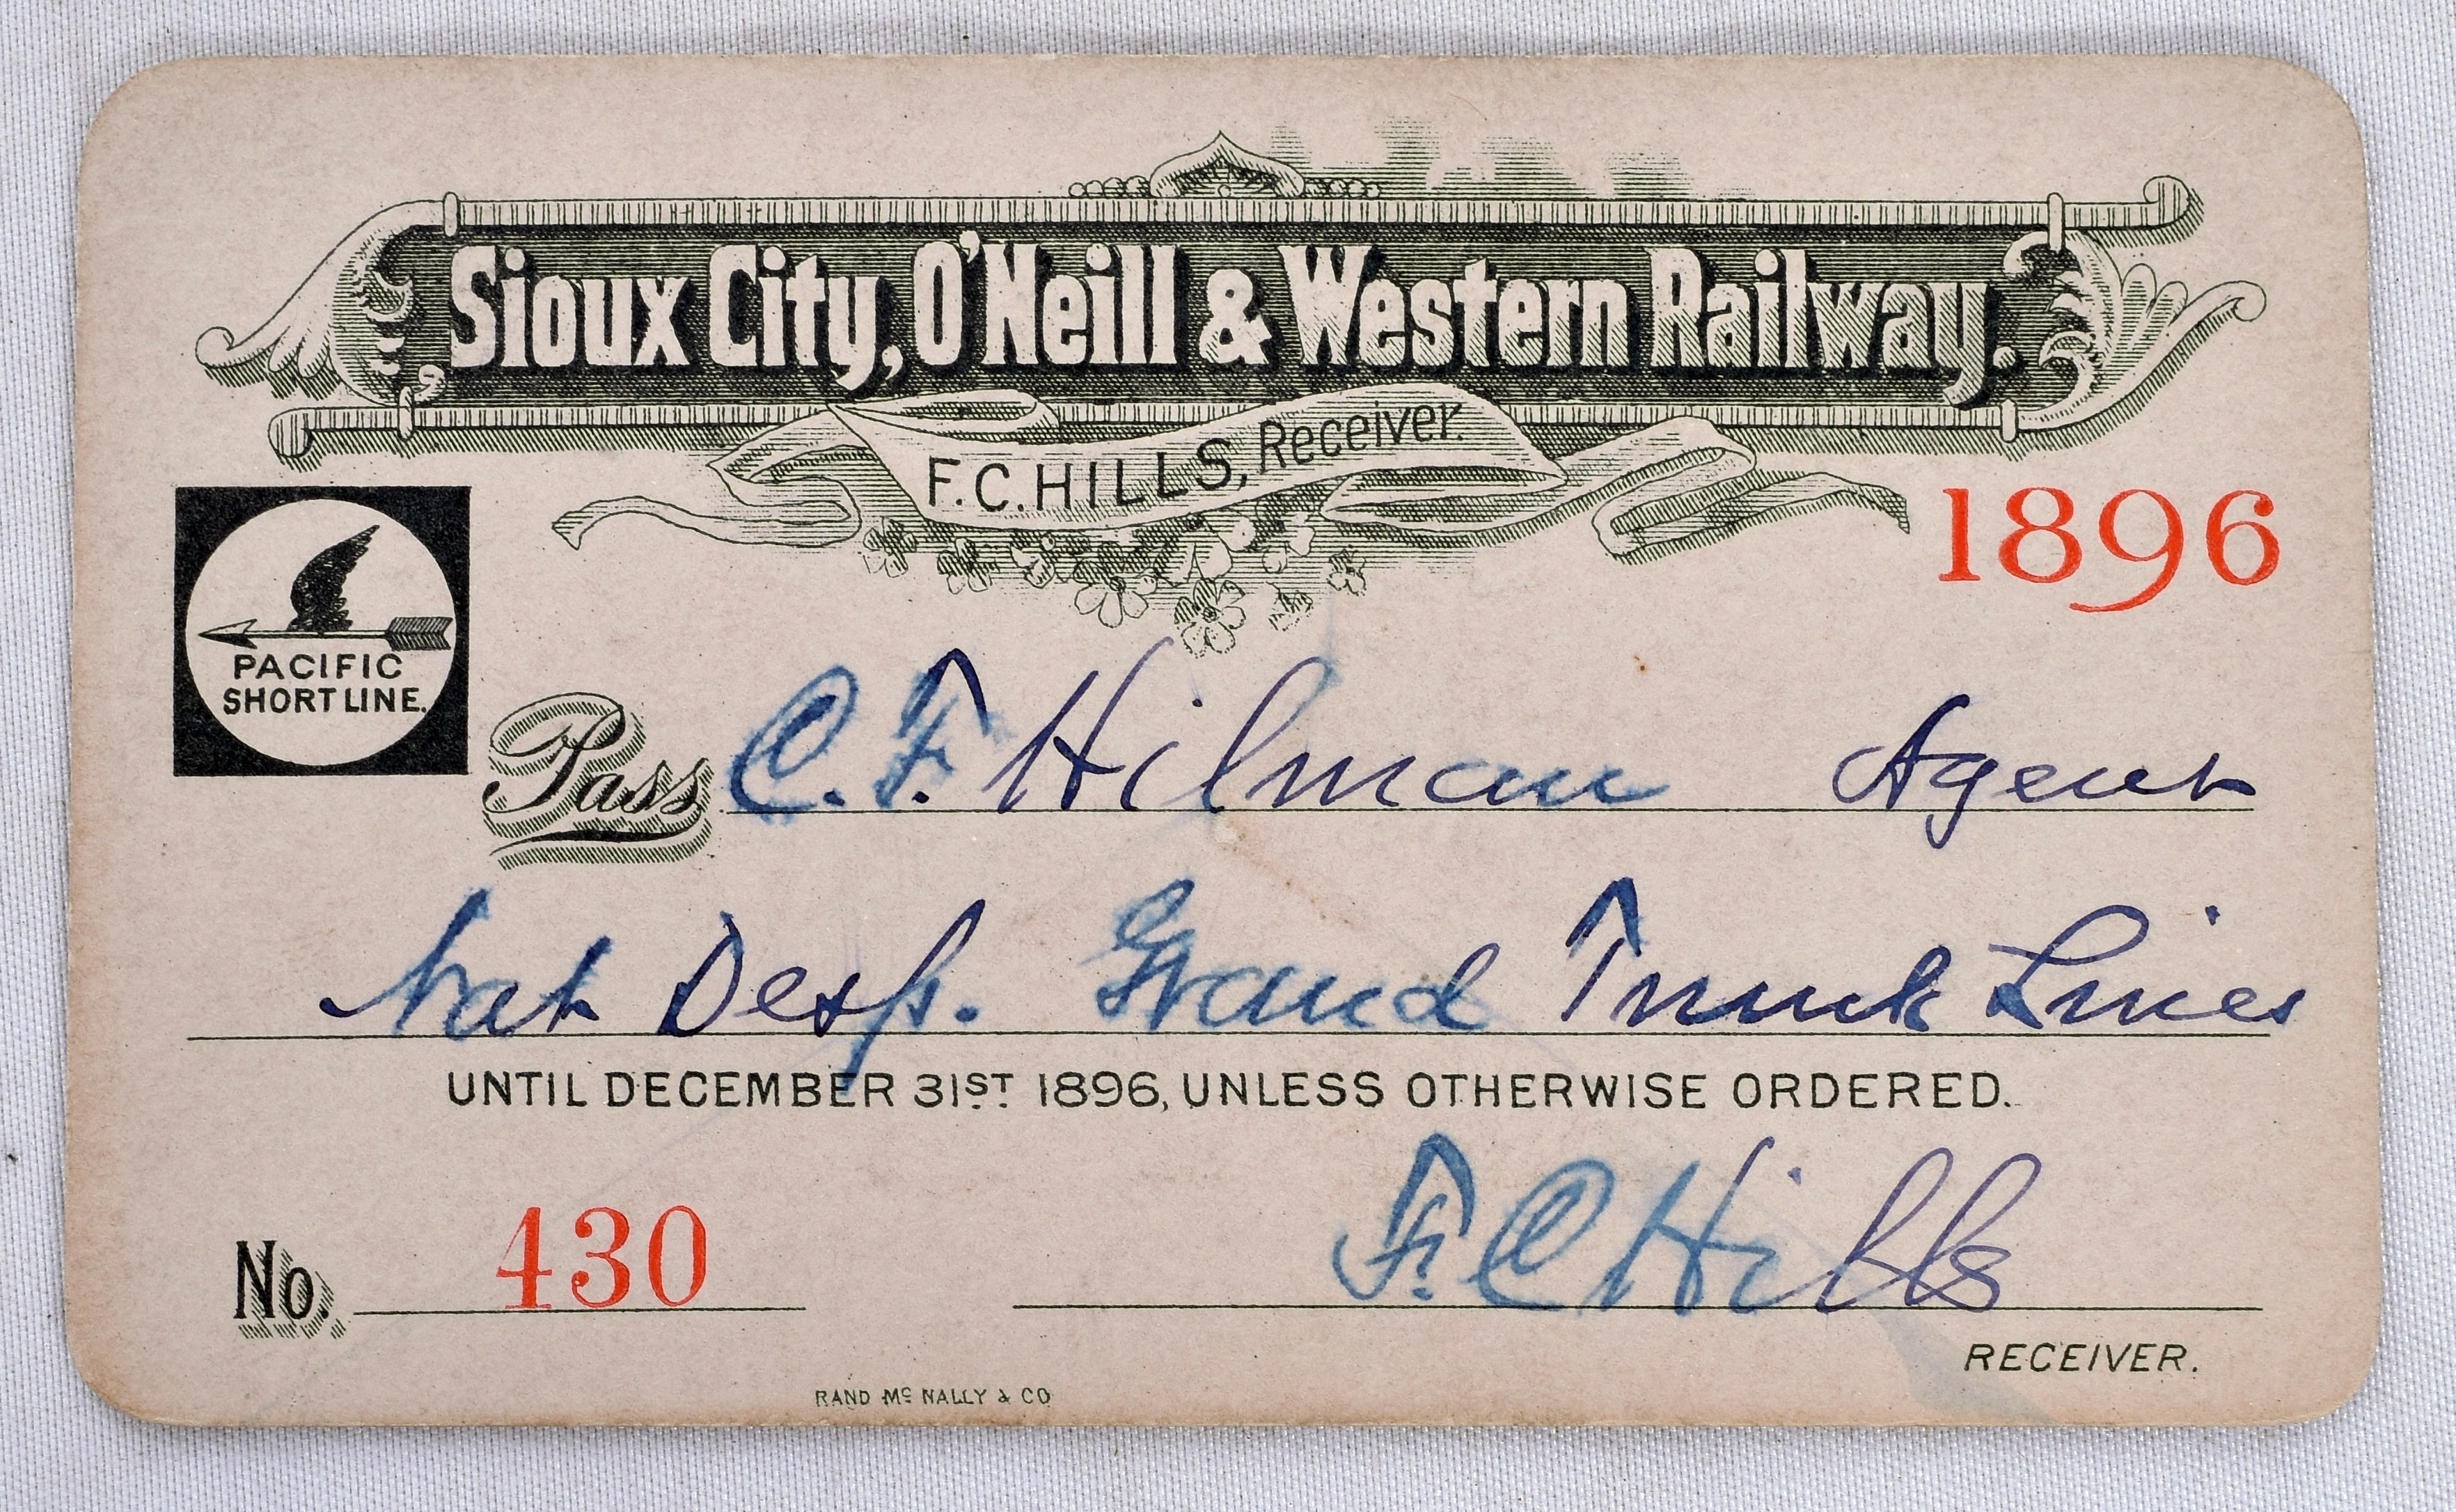 Sioux City, O'Neill & Western Railway.
F.C. HILLS, Receiver.
1896
PACIFIC
SHORT LINE.
Pass C. F. Hilman Agent
Nat Desp. Grand Trunk Lines
UNTIL DECEMBER 31ST 1896, UNLESS OTHERWISE ORDERED.
No. 430
F. C Hills
RECEIVER.
RAND MC NALLY & CO